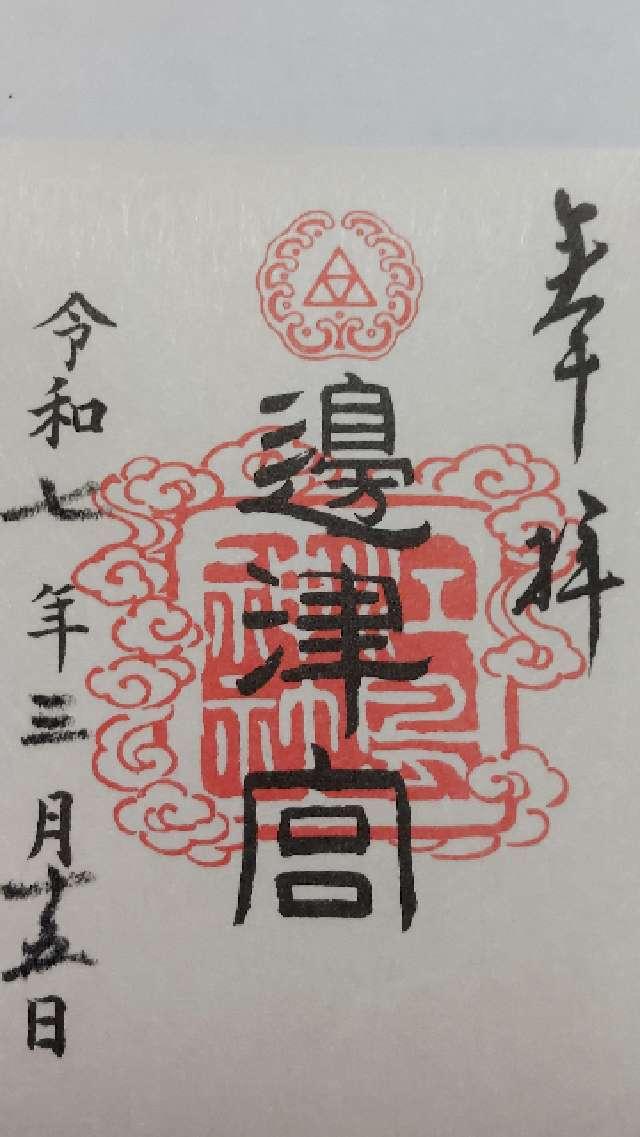 奉拝
邊津宮
令和七年三月十五日